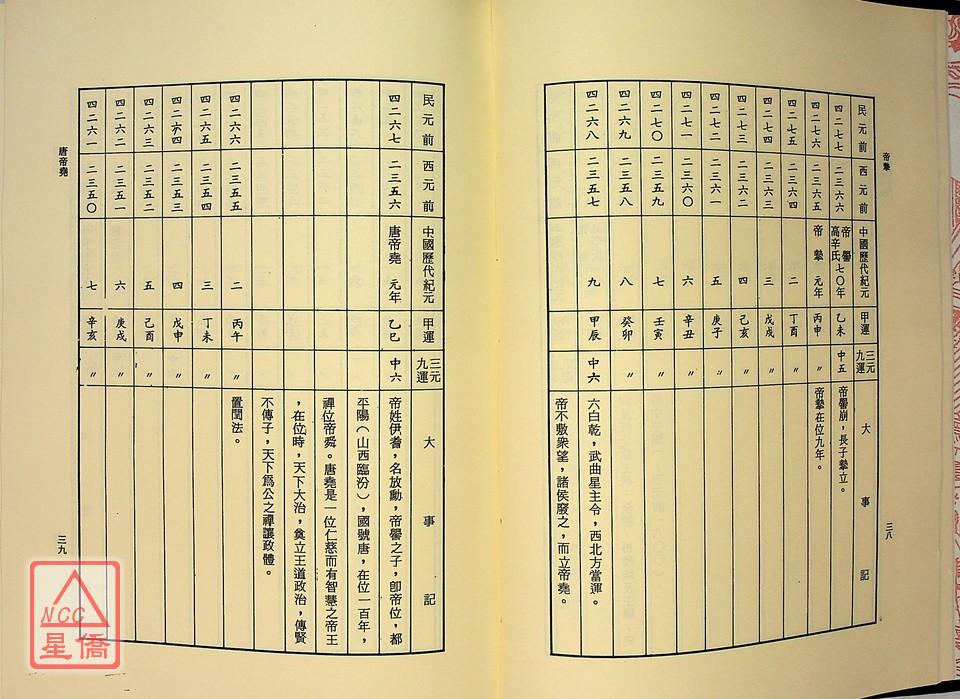 帝摯
三八
民元前 西元前 中國歷代紀元 甲運 三元九運 大事記
四二七七 二三六六 帝嚳高辛氏七〇年 乙未 中五 帝嚳崩，長子摯立。
四二七六 二三六五 帝摯 元年 丙申 〃 帝摯在位九年。
四二七五 二三六四 二 丁酉 〃
四二七四 二三六三 三 戊戌 〃
四二七三 二三六二 四 己亥 〃
四二七二 二三六一 五 庚子 〃
四二七一 二三六〇 六 辛丑 〃
四二七〇 二三五九 七 壬寅 〃
四二六九 二三五八 八 癸卯 〃
四二六八 二三五七 九 甲辰 中六 六白乾，武曲星主令，西北方當運。
帝不敷衆望，諸侯廢之，而立帝堯。
民元前 西元前 中國歷代紀元 甲運 三元九運 大事記
四二六七 二三五六 唐帝堯 元年 乙巳 中六 帝姓伊耆，名放勳，帝嚳之子，卽帝位，都
平陽（山西臨汾），國號唐，在位一百年，
禪位帝舜。唐堯是一位仁慈而有智慧之帝王
，在位時，天下大治，奠立王道政治，傳賢
不傳子，天下爲公之禪讓政體。
四二六六 二三五五 二 丙午 〃 置閏法。
四二六五 二三五四 三 丁未 〃
四二六四 二三五三 四 戊申 〃
四二六三 二三五二 五 己酉 〃
四二六二 二三五一 六 庚戌 〃
四二六一 二三五〇 七 辛亥 〃
唐帝堯
三九
NCC
星僑